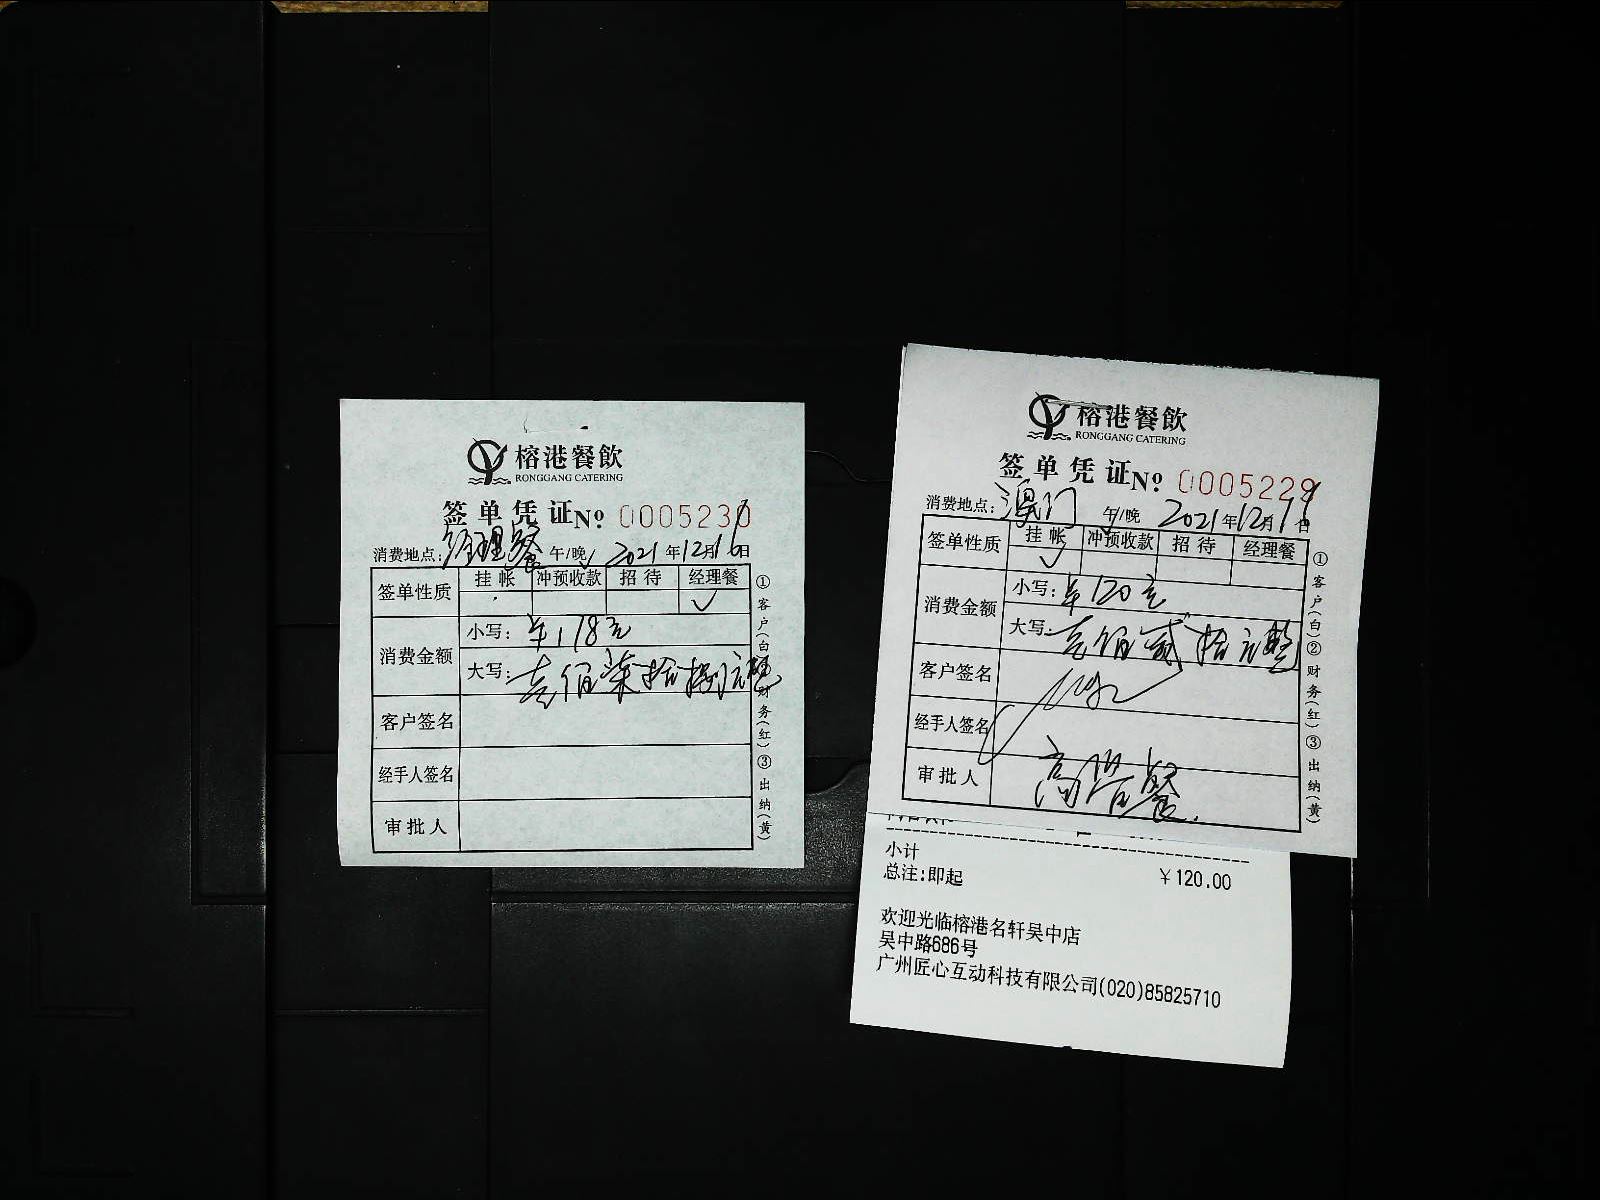 榕港餐飲
RONGGANG CATERING
签单凭证 No 0005230
消费地点: 经理餐 午/晚 2021年12月16日
签单性质 挂帐 冲预收款 招待 经理餐
✓
消费金额
小写: ¥178元
大写: 壹佰柒拾捌元整
客户签名
经手人签名
审批人
①客户(白)②财务(红)③出纳(黄)
榕港餐飲
RONGGANG CATERING
签单凭证 No 0005229
消费地点: 澳门 午/晚 2021年12月19日
签单性质 挂帐 冲预收款 招待 经理餐
✓
消费金额
小写: ¥120元
大写: 壹佰贰拾元整
客户签名
经手人签名
审批人 高管餐.
①客户(白)②财务(红)③出纳(黄)
小计
总注:即起 ¥120.00
欢迎光临榕港名轩吴中店
吴中路686号
广州匠心互动科技有限公司(020)85825710